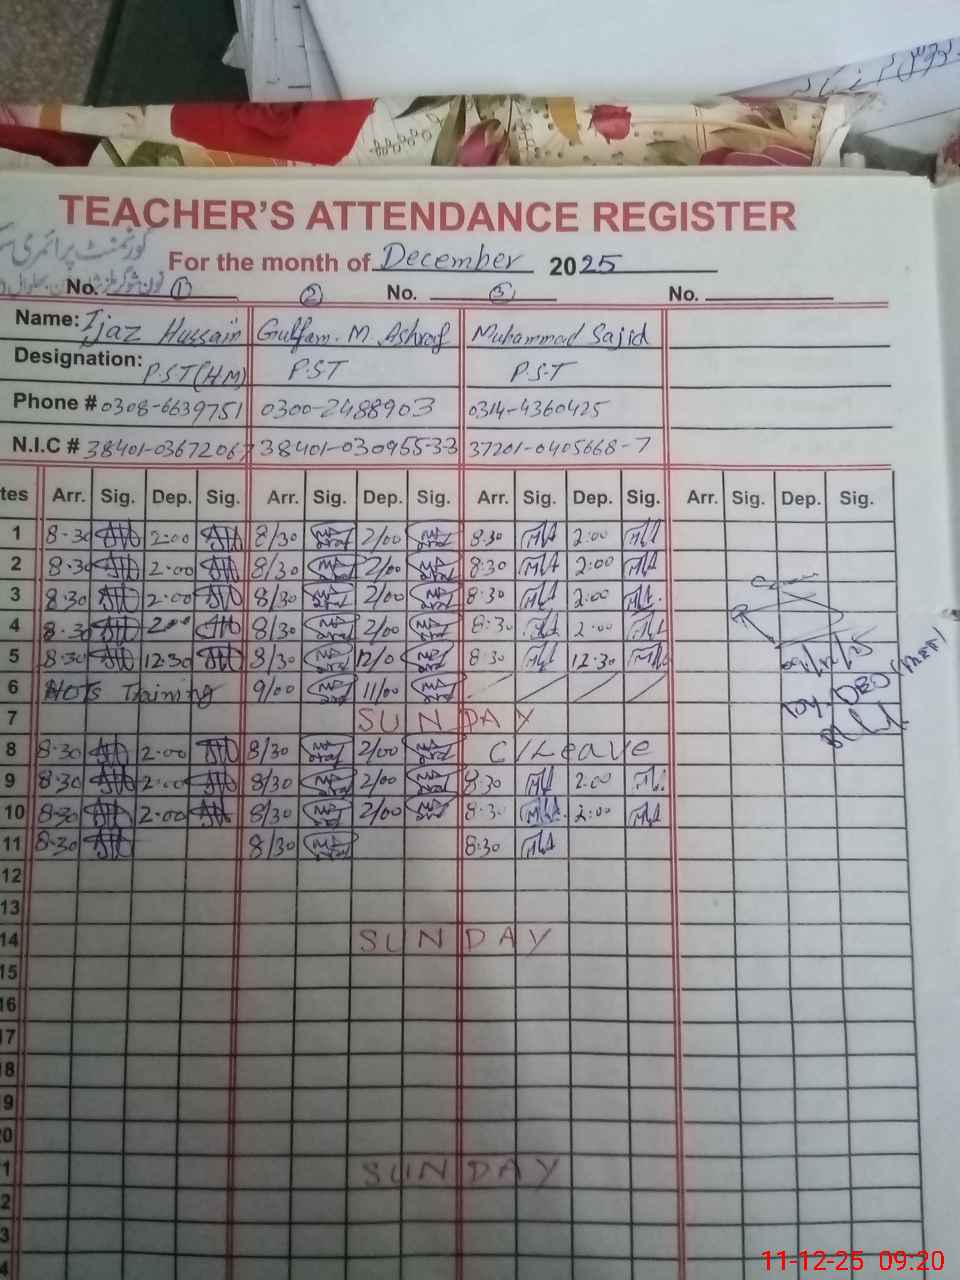 TEACHER'S ATTENDANCE REGISTER
گورنمنٹ پرائمری
For the month of December 2025
No. 1 2 No. 3 No.
Name: Ijaz Hussain Gulfam. M. Ashraf Muhammad Sajid
Designation: P.S.T (H M) P.S.T P.S.T
Phone # 0308-6639751 0300-2488903 0314-4360425
N.I.C # 38401-0367206-7 38401-0309553-3 37201-0405668-7
tes Arr. Sig. Dep. Sig. Arr. Sig. Dep. Sig. Arr. Sig. Dep. Sig. Arr. Sig. Dep. Sig.
1 8.30 2.00 8/30 2/00 8:30 2:00
2 8.30 2.00 8/30 2/00 8:30 2:00
3 8.30 2.00 8/30 2/00 8:30 2:00
4 8.30 2.00 8/30 2/00 8:30 2:00
5 8.30 12.30 8/30 12/0 8:30 12:30
6 HOTs Training 9/00 11/00
7 SUNDAY
8 8.30 2.00 8/30 2/00 C/Leave
9 8.30 2.00 8/30 2/00 8:30 2:00
10 8.30 2.00 8/30 2/00 8:30 2:00
11 8.30 8/30 8:30
12
13
14 SUNDAY
15
16
17
18
19
20
1 SUNDAY
2
3
4
11-12-25 09:20